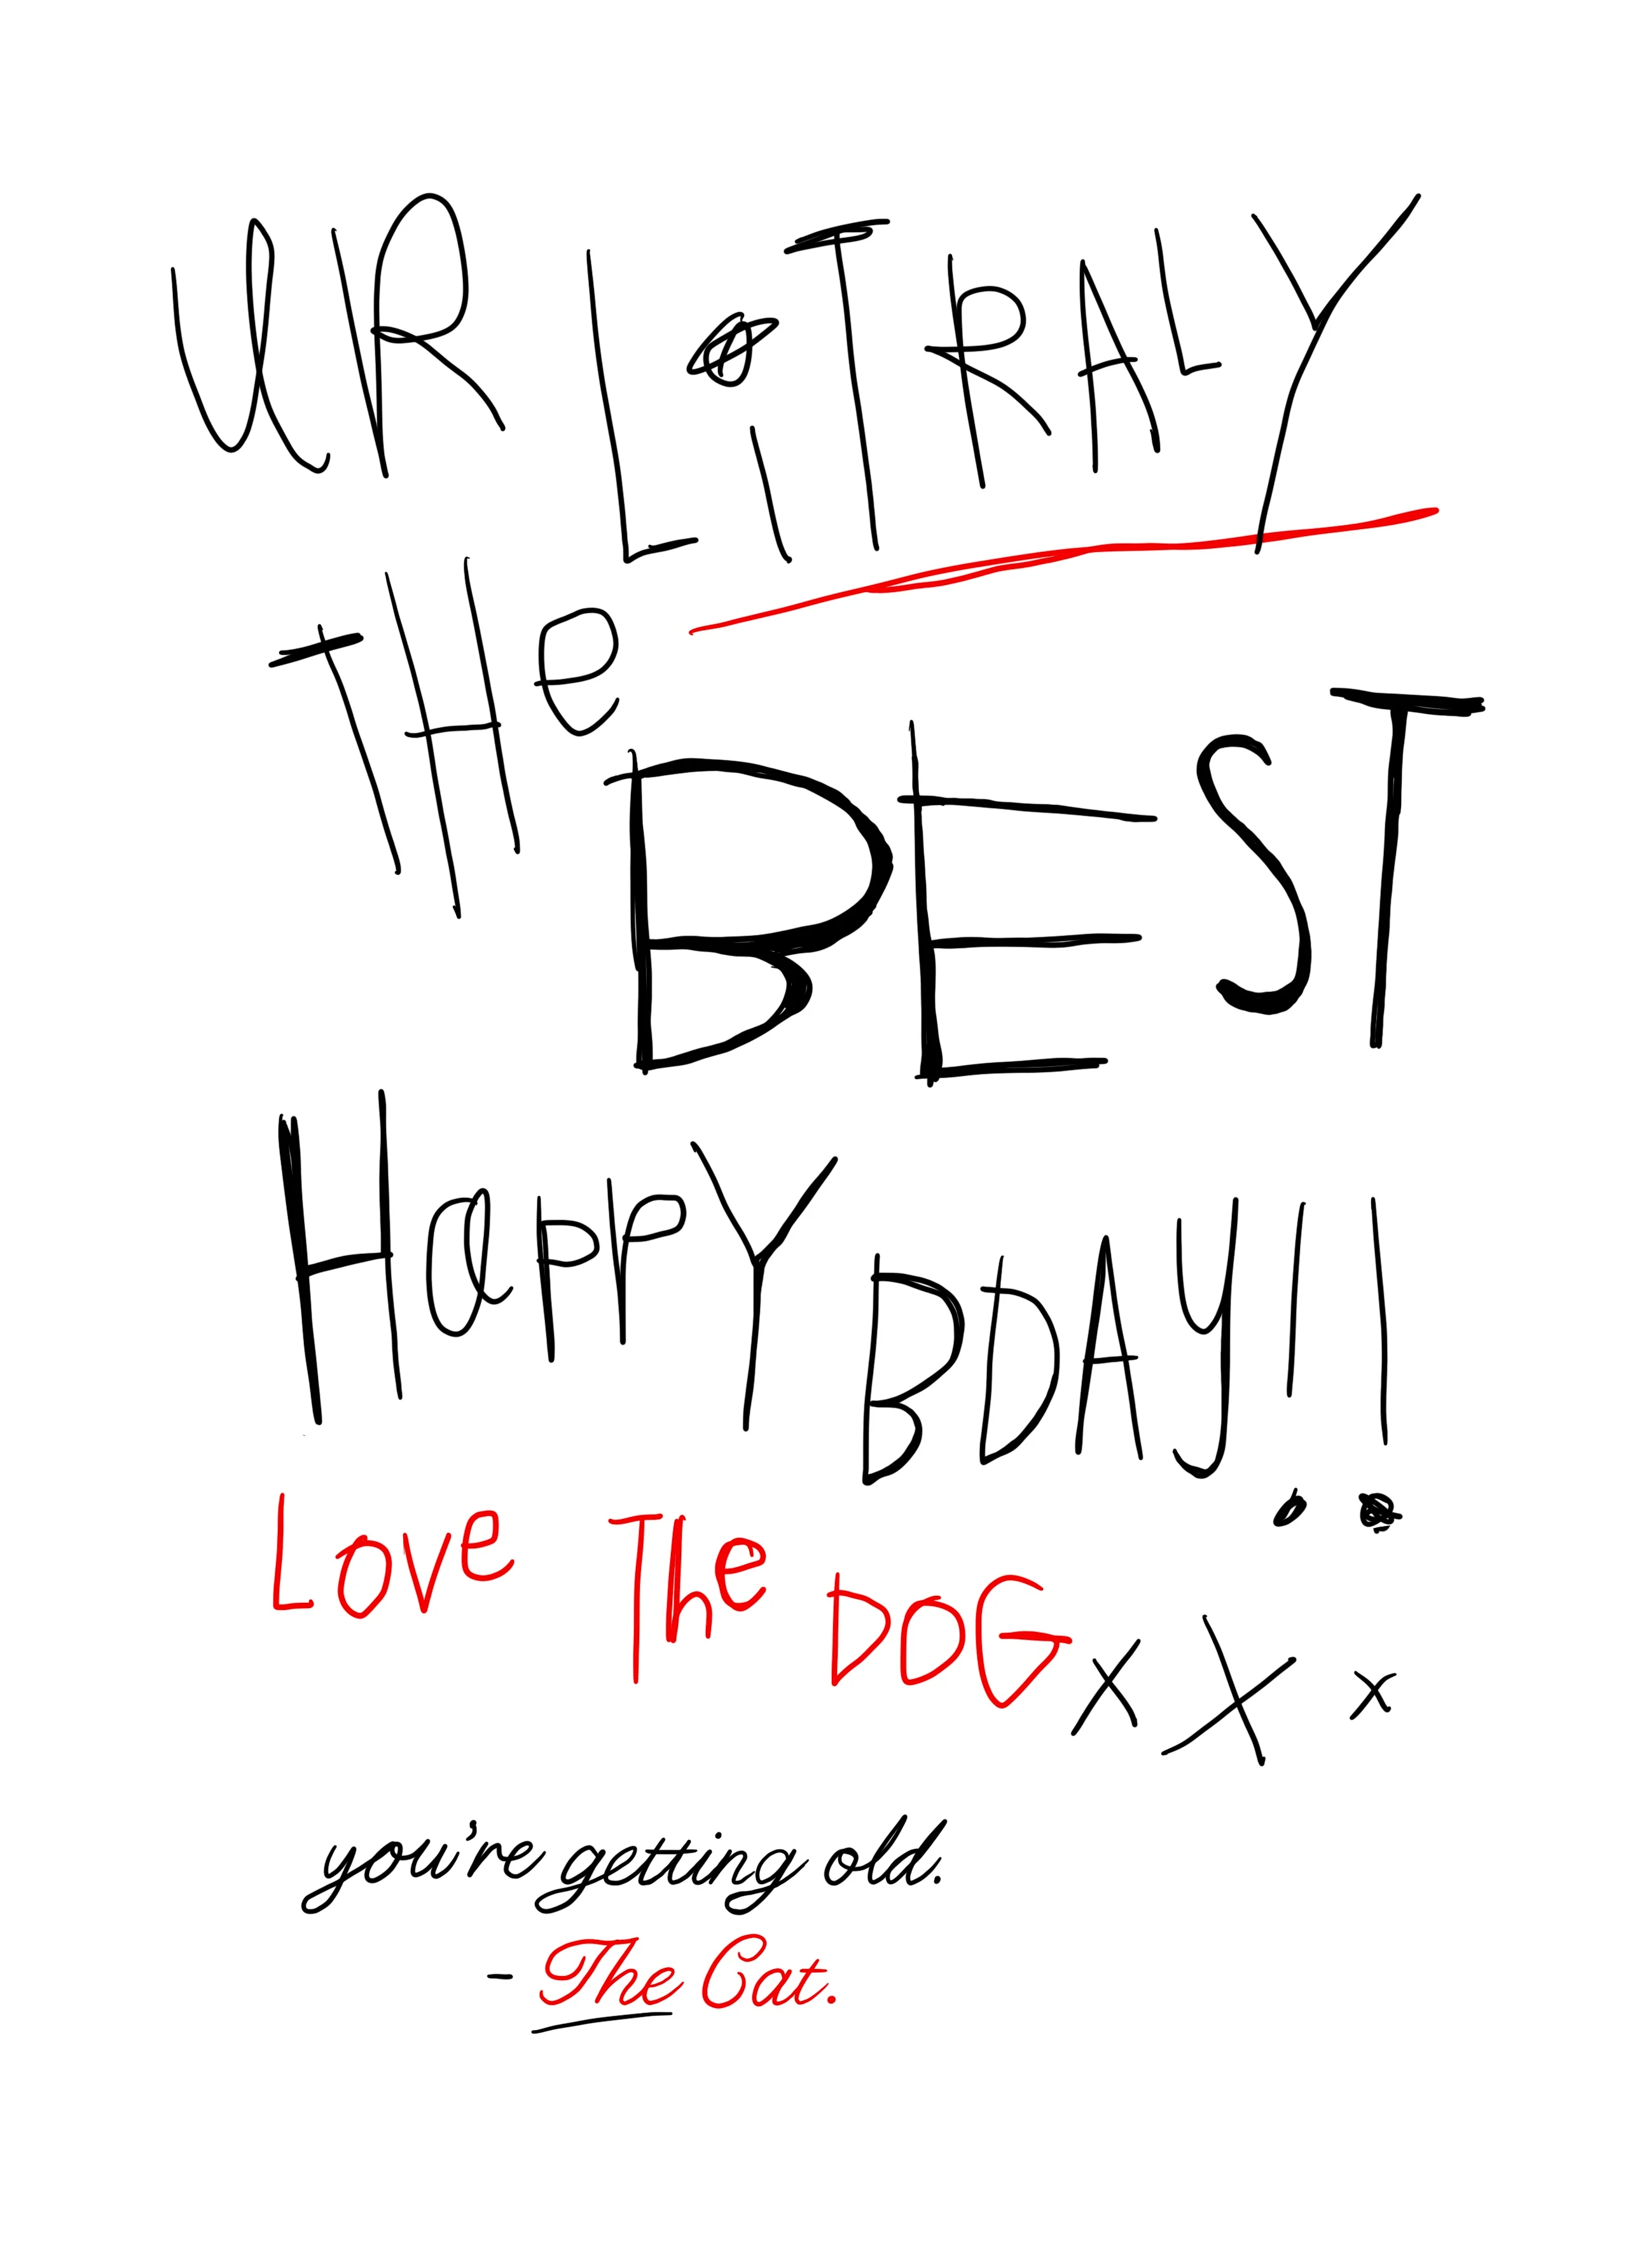 UR LiTRALY
THe
BEST
HaPPY BDAY!!
Love The DOG x X x
you're getting old.
- The Cat.